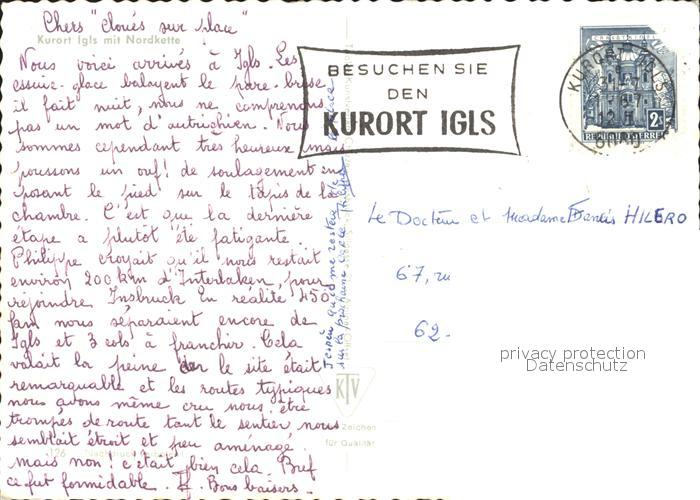 Chers "cloués sur place"
Kurort Igls mit Nordkette
Nous voici arrivés à Igls. Les
essuie-glace balayent le pare-brise
il fait nuit, nous ne comprenons
pas un mot d'autrichien. Nous
sommes cependant très heureux mais
poussons un ouf! de soulagement en
posant le pied sur le tapis de la
chambre. C'est que la dernière
étape a plutôt été fatigante.
Philippe croyait qu'il nous restait
environ 200 km d'Interlaken, pour
rejoindre Insbruck En réalité 450
km nous séparaient encore de
Igls et 3 cols à franchir. Cela
valait la peine car le site était
remarquable et les routes typiques
nous avons même cru nous être
trompés de route tant le sentier nous
semblait étroit et peu aménagé.
mais non! c'était bien cela. Bref
ce fut formidable. Bons baisers.
sur la prochaine carte
BESUCHEN SIE
DEN
KURORT IGLS
KURORT IGLS
2 S
REPUBLIK ÖSTERREICH
Le Docteur et Madame Francis HILERO
67, ru
62.
privacy protection
Datenschutz
KTV
Zeichen
für Qualität
126